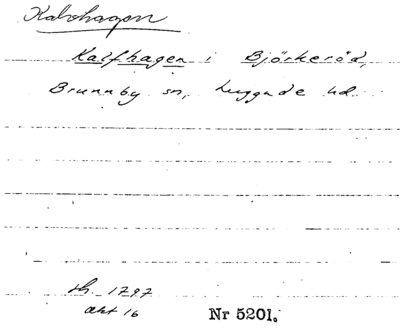 Kalvhagen
Kalfhagen i Björkeröd,
Brunnby sn, huggade ud
sk. 1797
akt 16 Nr 5201.